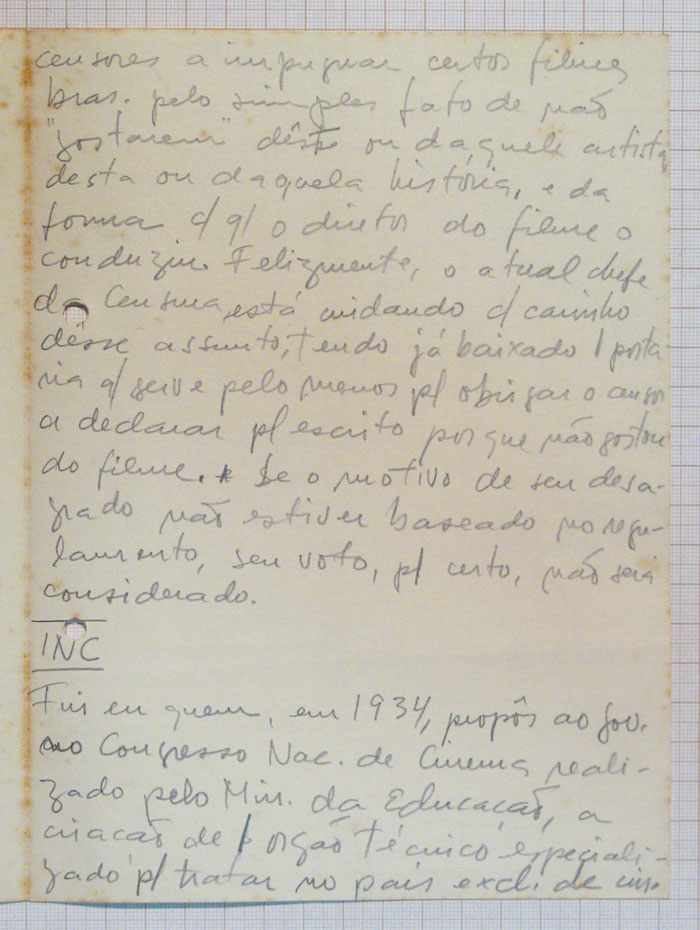 censores a impugnar certos filmes
bras. pelo simples fato de não
"gostarem" dêste ou daquele artista,
desta ou daquela história, e da
forma c/ q/ o diretor do filme o
conduziu. Felizmente, o atual chefe
da Censura, está cuidando c/ carinho
dêsse assunto, tendo já baixado 1 porta-
ria q/ serve pelo menos p/ obrigar o censor
a declarar p/ escrito porque não gostou
do filme. * Se o motivo de seu desa-
grado não estiver baseado no regu-
lamento, seu voto, p/ certo, não será
considerado.
INC
Fui eu quem, em 1934, propôs ao gov.
no Congresso Nac. de Cinema reali-
zado pelo Min. da Educação, a
criação de 1 orgão técnico especiali-
zado p/ tratar no país excl. de